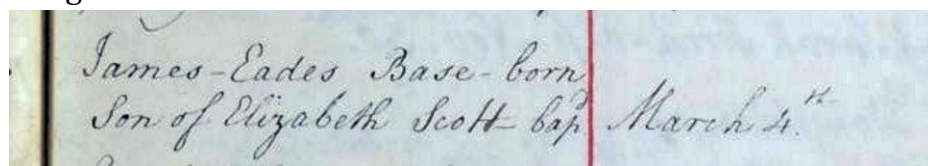 James-Eades Base-born
Son of Elizabeth Scott bap^d March 4^th.